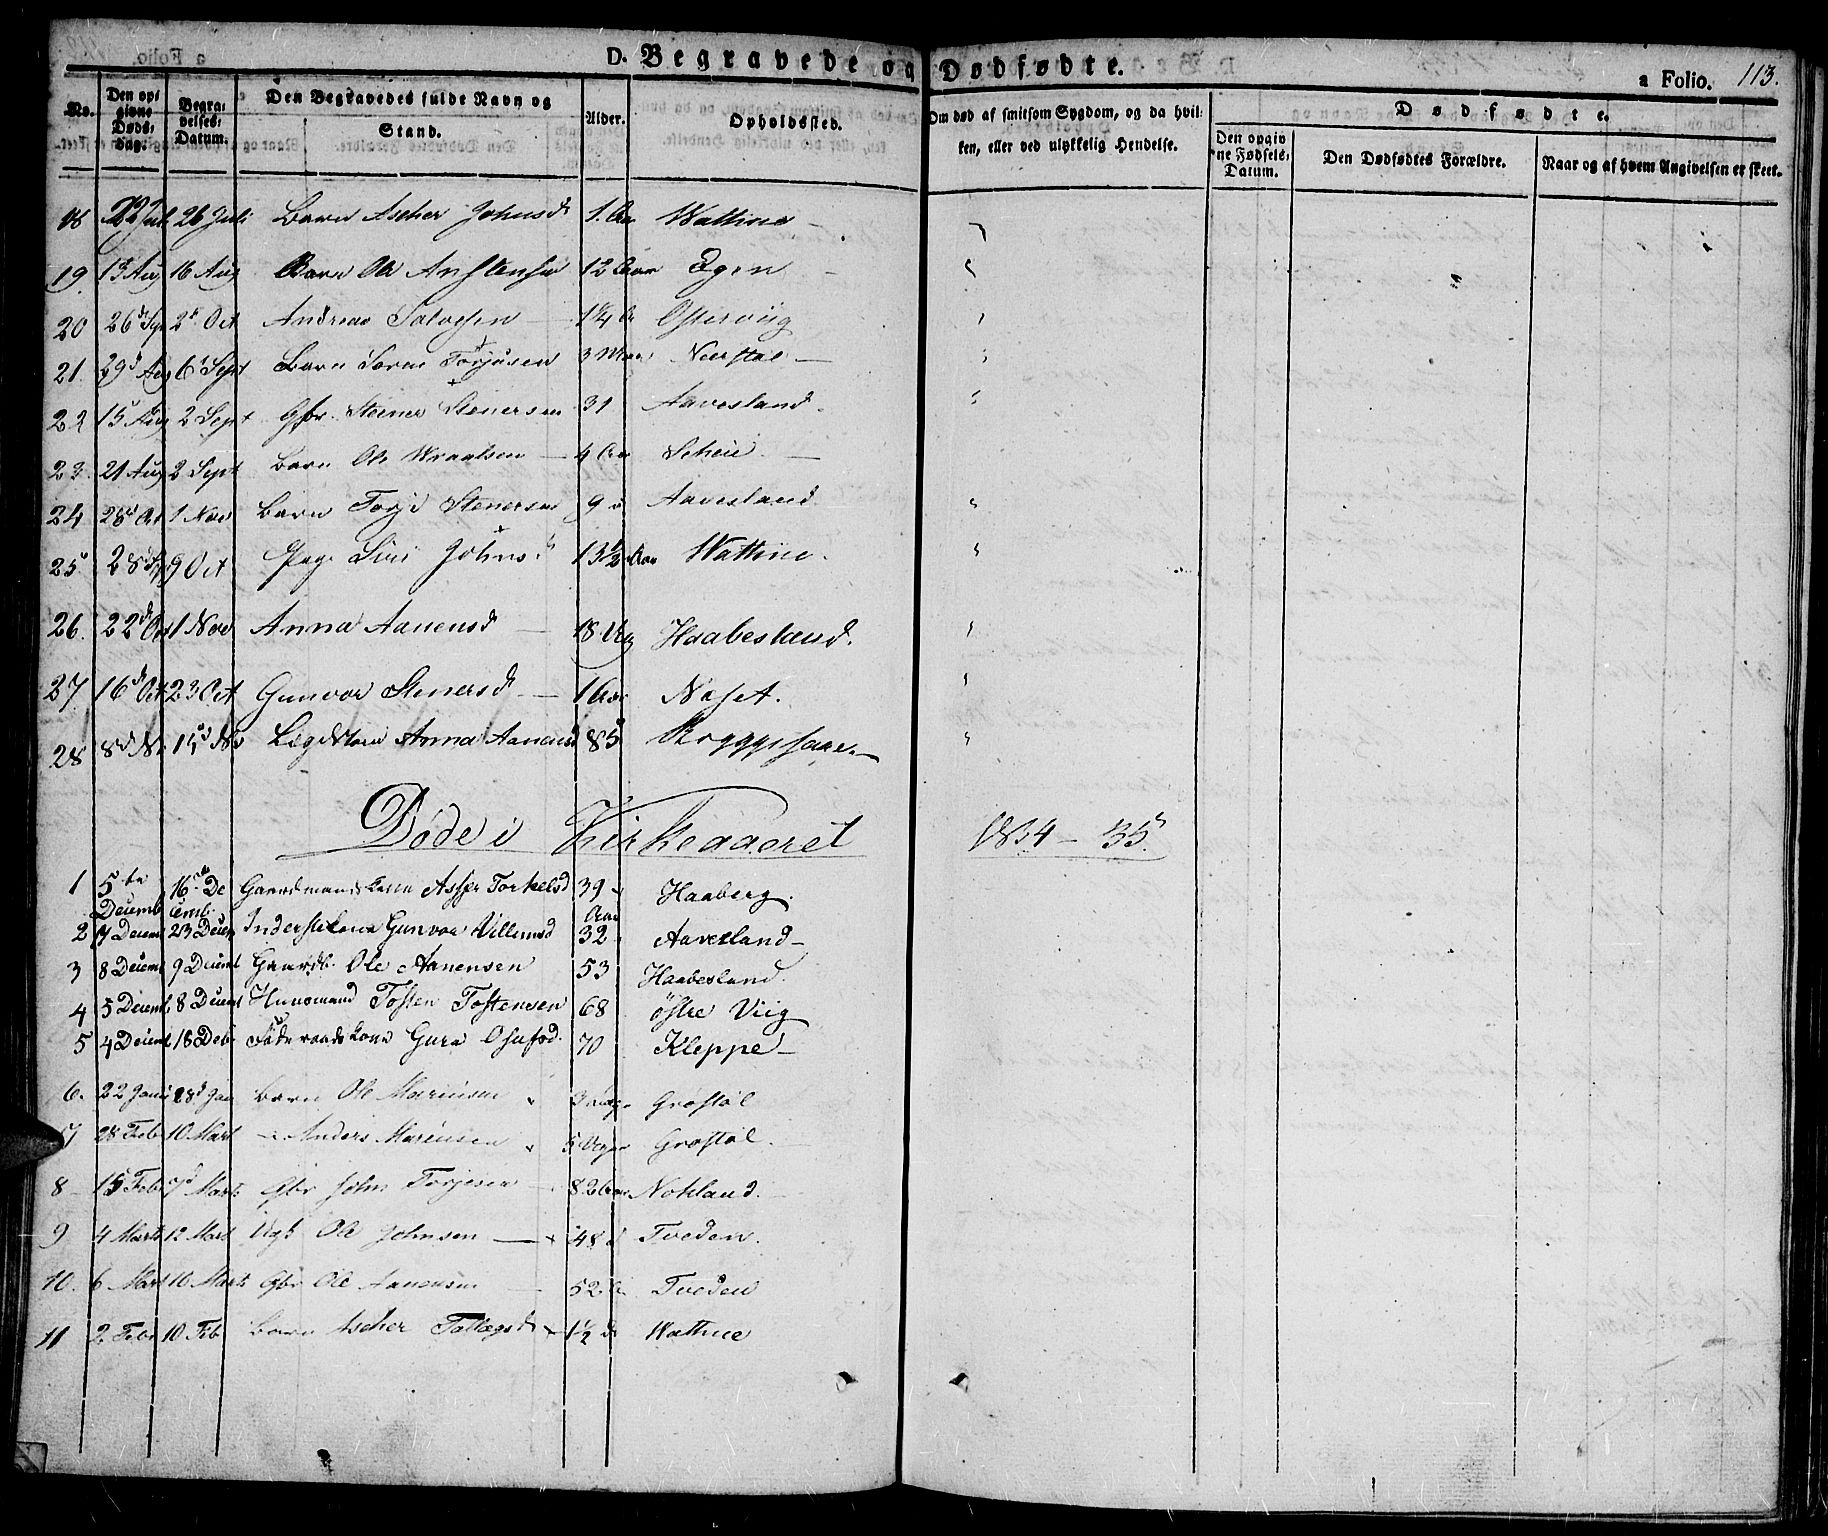 D. Begravede og Dødfødte. a Folio. 113.
No. Den opgivne Døds-dag. Begravelses-Datum. Den Begravedes fulde Navn og Stand. Alder. Opholdssted. Om død af smitsom Sygdom, og da hvilken, eller ved ulykkelig Hendelse. Dødfødte. Den opgivne Fødsels-Datum. Den Dødfødtes Forældre. Naar og af hvem Angivelsen er skeet.
18 22 Juli 26 Juli Barn Ascher Johnsd 1. Aar Wattne
19. 13 Aug 16 Aug Barn Ole Anstensen 12 Aar Egen
20 26d Sep 2d Oct Andreas Salvesen 1 1/4 Aar Østerviig
21. 29d Aug 6 Sept Barn Søren Torjusen 3 Maan
22 15 Aug 2 Sept Gbr. Stener Stenersen 31 Aavesland.
23. 21 Aug 2 Sept Barn Ole Wraalsen 4 Aar Scheie.
24 28d Oct 1 Nov Barn Torje Stenersen 9 Aavesland
25 28d 9 Oct Pige Siri Johnsd 13 1/2 Aar Wattne.
26. 22d Oct 1 Nov Anna Aanensd 18 Ug Haabesland.
27. 16d Oct 23 Oct Gunvor Stenersd 1 Aar Naset.
28 8d No 15d No Lægdskone Anna Aanensd 85
Døde i Kirkeaaret 1834 - 35
1 5te Decemb 16de Decemb Gaardmandskone Asser Torkelsd 39 Aar Haaberg.
2 7 Decemb 23 Decem Inderstekone Gunvor Villumsd 32 Aavesland
3 8 Decemb 9 Decemb Gaardb. Ole Aanensen 53 Haabesland.
4 5 Decemb 8 Decemb Huusmand Tosten Tostensen 68 østre Viig
5 4 Decemb 18 Deb Føderaadskone Guro Osufsd. 70 Kleppe
6. 22 Janu 28d Jan Barn Ole Mariusen 3 Grøstøl
7 28 Feb 10 Mart - Anders Mariusen 5 Uger Grøstøl.
8 15 Feb 7d Marts Gbr John Torjesen 82 Aar Nokland.
9 4 Marts 12 Mart Ugk Ole Johnsen 48 Tveden.
10. 6 Mart 10 Marts Gbr Ole Aanensen 52 A Tveden
11 2 Feb 10 Feb Barn Ascher Tallegsd 1 1/2 Wattne